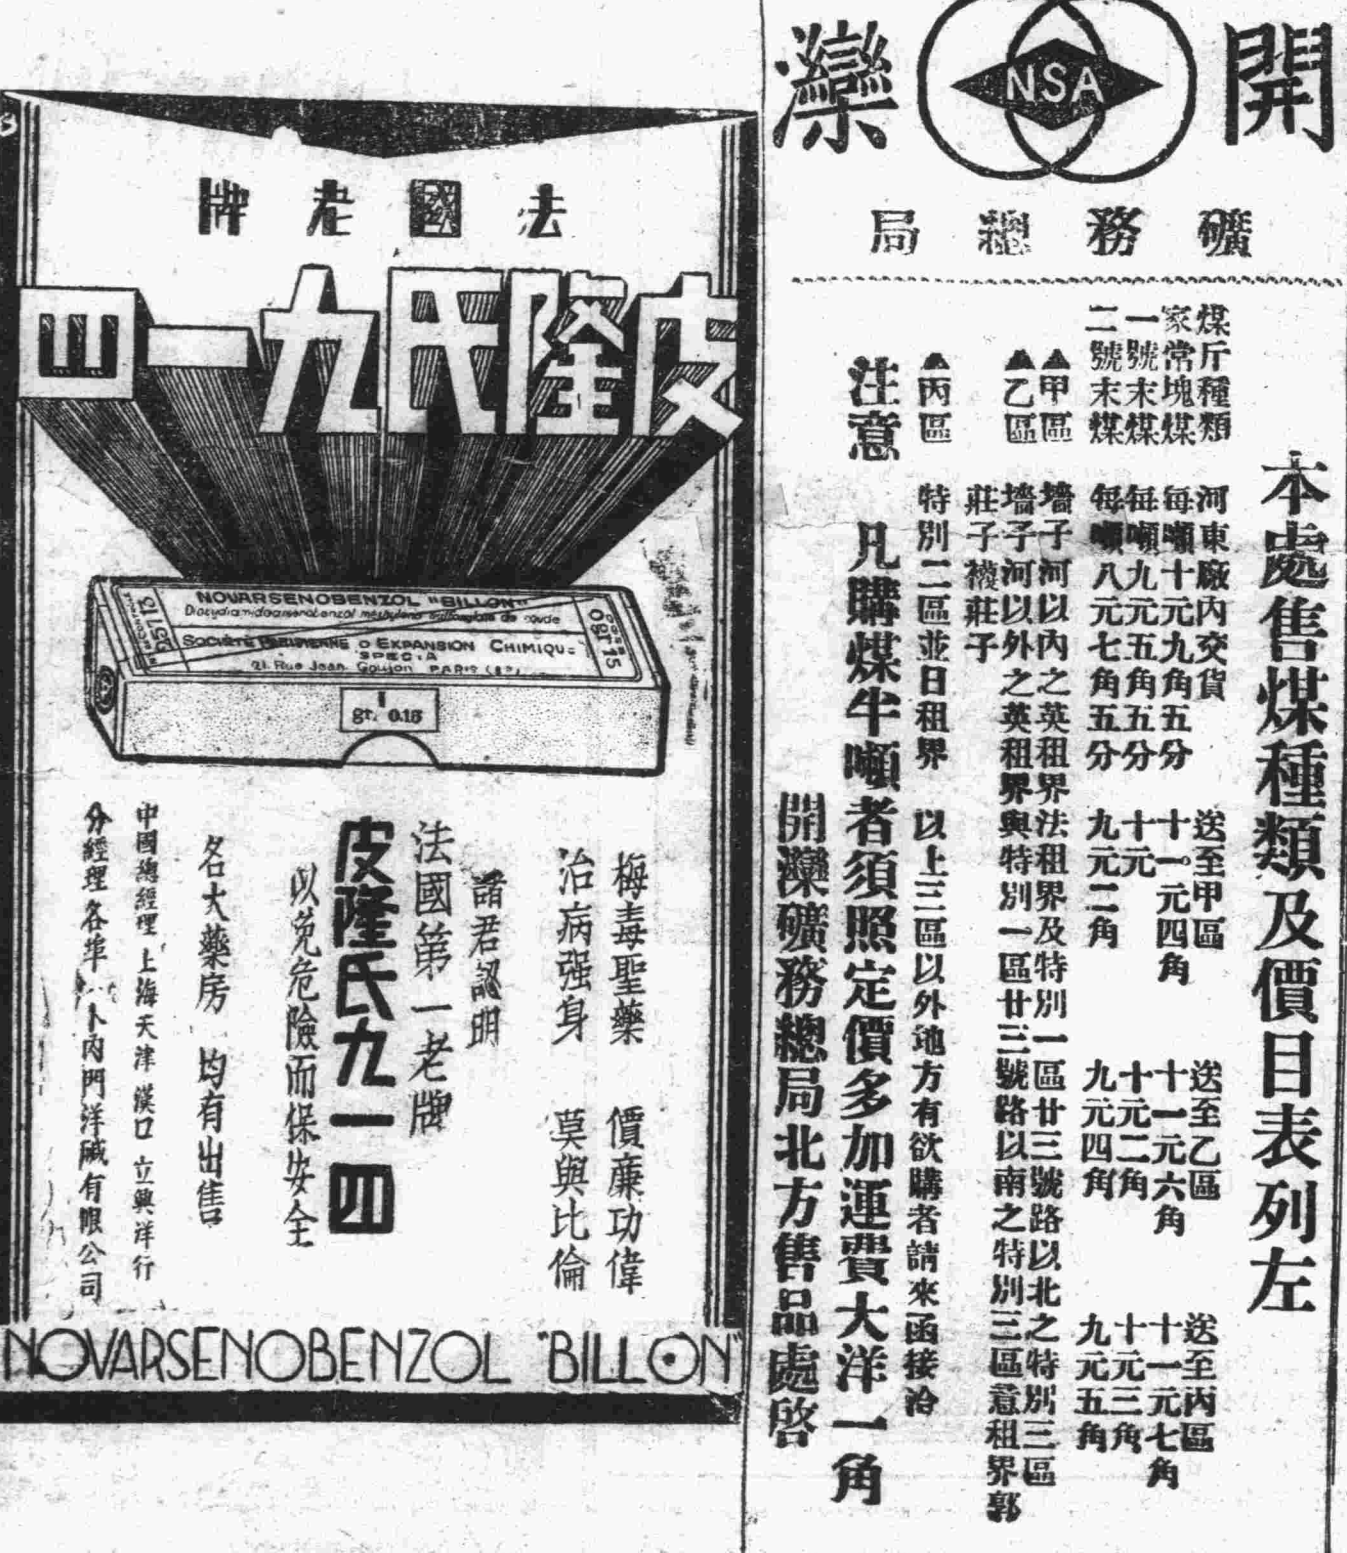 開灤
NSA
礦務總局
本處售煤種類及價目表列左
煤斤種類 河東廠內交貨 送至甲區 送至乙區 送至丙區
家常塊煤 每噸十元九角五分 十一元四角 十一元六角 十一元七角
一號末煤 每噸九元五角五分 十元 十元二角 十元三角
二號末煤 每噸八元七角五分 九元二角 九元四角 九元五角
▲甲區 墻子河以內之英租界法租界及特別一區廿三號路以北之特別三區
▲乙區 墻子河以外之英租界與特別一區廿三號路以南之特別三區意租界郭
莊子襪莊子
▲丙區 特別二區並日租界 以上三區以外地方有欲購者請來函接洽
注意 凡購煤半噸者須照定價多加運費大洋一角
開灤礦務總局北方售品處啓
法國老牌
皮隆氏九一四
NOVARSENOBENZOL "BILLON"
SOCIÉTÉ PARISIENNE D'EXPANSION CHIMIQUE
SPECIA
21, Rue Jean Goujon PARIS (8e)
0gr15
gr. 0.15
梅毒聖藥 價廉功偉
治病强身 莫與比倫
諸君認明
法國第一老牌
皮隆氏九一四
以免危險而保安全
名大藥房 均有出售
中國總經理 上海 天津 漢口 立興洋行
分經理各埠 卜內門洋碱有限公司
NOVARSENOBENZOL "BILLON"